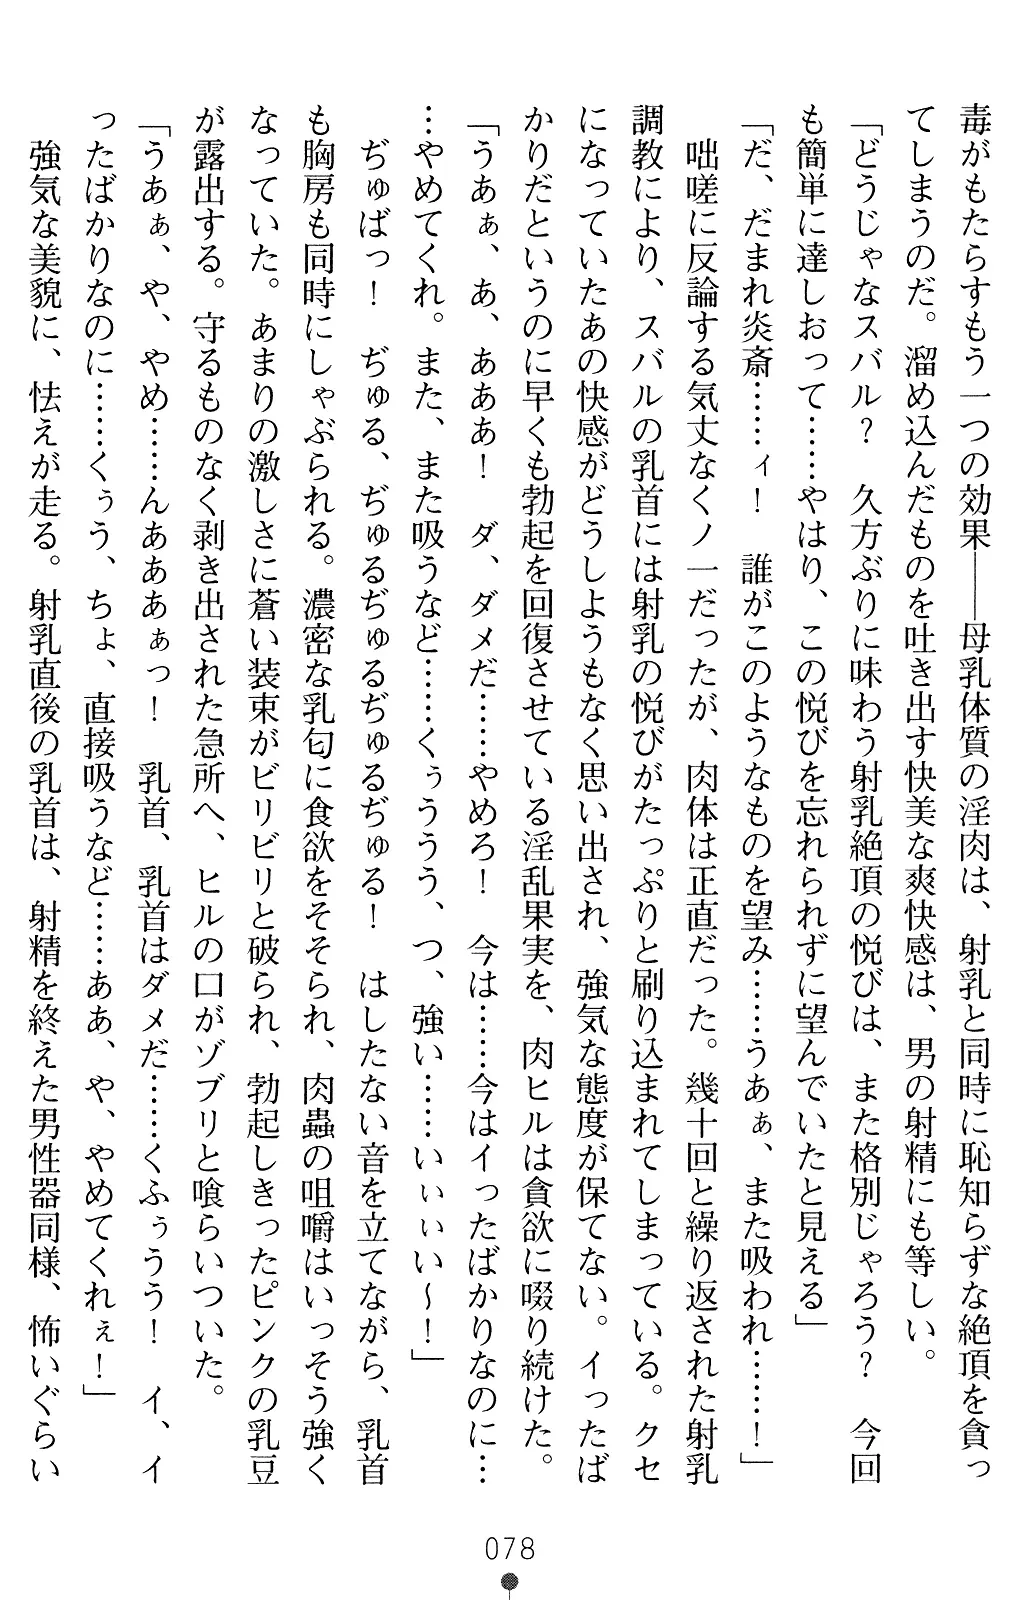 毒がもたらすもう一つの効果――母乳体質の淫肉は、射乳と同時に恥知らずな絶頂を貪っ
てしまうのだ。溜め込んだものを吐き出す快美な爽快感は、男の射精にも等しい。
「どうじゃなスバル？　久方ぶりに味わう射乳絶頂の悦びは、また格別じゃろう？　今回
も簡単に達しおって……やはり、この悦びを忘れられずに望んでいたと見える」
「だ、だまれ炎斎……ィ！　誰がこのようなものを望み……うあぁ、また吸われ……！」
　咄嗟に反論する気丈なくノ一だったが、肉体は正直だった。幾十回と繰り返された射乳
調教により、スバルの乳首には射乳の悦びがたっぷりと刷り込まれてしまっている。クセ
になっていたあの快感がどうしようもなく思い出され、強気な態度が保てない。イったば
かりだというのに早くも勃起を回復させている淫乱果実を、肉ヒルは貪欲に啜り続けた。
「うあぁ、あ、あああ！　ダ、ダメだ……やめろ！　今は……今はイったばかりなのに…
…やめてくれ。また、また吸うなど……くぅううう、つ、強い……いぃぃい～！」
　ぢゅばっ！　ぢゅる、ぢゅるぢゅるぢゅる！　はしたない音を立てながら、乳首
も胸房も同時にしゃぶられる。濃密な乳匂に食欲をそそられ、肉蟲の咀嚼はいっそう強く
なっていた。あまりの激しさに蒼い装束がビリビリと破られ、勃起しきったピンクの乳豆
が露出する。守るものなく剥き出された急所へ、ヒルの口がゾブリと喰らいついた。
「うあぁ、や、やめ……んあああぁっ！　乳首、乳首はダメだ……くふぅうう！　イ、イ
ったばかりなのに……くぅう、ちょ、直接吸うなど……ああ、や、やめてくれぇ！」
　強気な美貌に、怯えが走る。射乳直後の乳首は、射精を終えた男性器同様、怖いぐらい
078